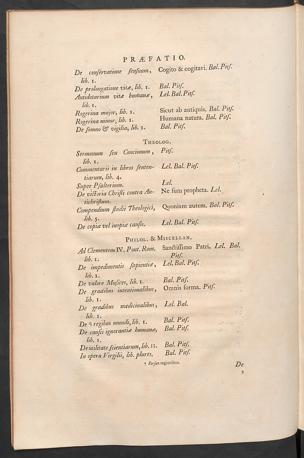 PRÆFATIO.
De conservatione sensuum, Cogito & cogitavi. Bal. Pits.
lib. 1.
De prolongatione vitæ, lib. 1. Bal. Pits.
Antidotarium vitæ humanæ, Lel. Bal. Pits.
lib. 1.
Rogerina major, lib. 1. Sicut ab antiquis. Bal. Pits.
Rogerina minor, lib. 1. Humana natura. Bal. Pits.
De somno & vigilia, lib. 1. Bal. Pits.
THEOLOG.
Sermonum seu Concionum, Pits.
lib. 1.
Commentarii in libros senten- Lel. Bal. Pits.
tiarum, lib. 4.
Super Psalterium. Lel.
De victoria Christi contra An- Ne sim propheta. Lel.
tichristum.
Compendium studii Theologici, Quoniam autem. Bal. Pits.
lib. 5.
De copia vel inopia causis. Lel. Bal. Pits.
PHILOL. & MISCELLAN.
Ad Clementem IV. Pont. Rom. Sanctissimo Patri. Lel. Bal.
lib. 1. Pits.
De impedimentis sapientiæ, Lel. Bal. Pits.
lib. 1.
De valore Musices, lib. 1. Bal. Pits.
De gradibus intentionalibus, Omnis forma. Pits.
lib. 1.
De gradibus medicinalibus, Lel. Bal.
lib. 1.
De regibus mundi, lib. 1. Bal. Pits.
De causis ignorantiæ humanæ, Bal. Pits.
lib. 1.
De utilitate scientiarum, lib. 11. Bal. Pits.
In opera Virgilii, lib. plures. Bal. Pits.
De